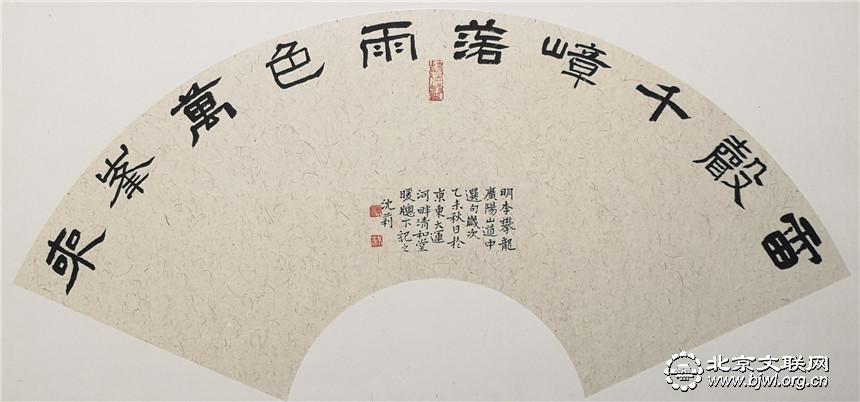 雷聲千嶂落雨色萬峯來
明李攀龍
廣陽山道中
選句歲次
乙未秋日於
京東大運
河畔清和堂
暖牕下記之
沈莉
北京文联网
www.bjwl.org.cn